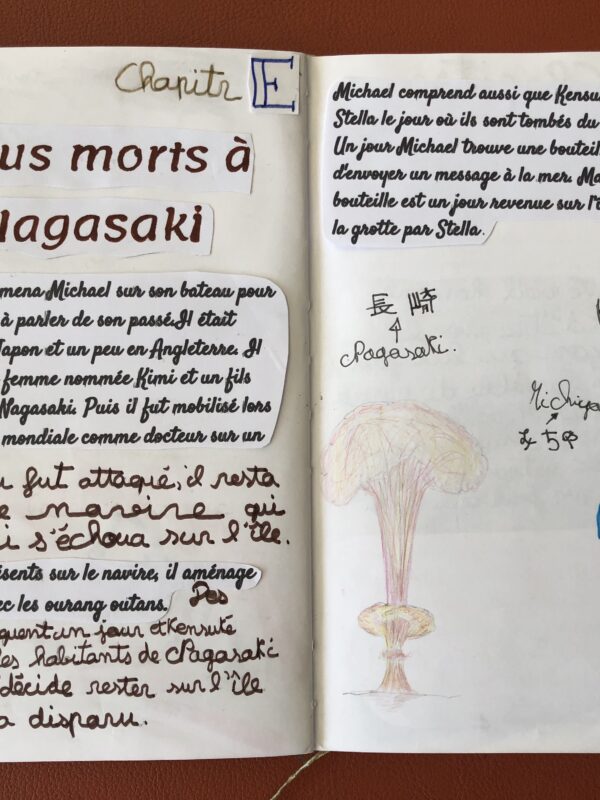 Chapitr E
us morts à
Nagasaki
mena Michael sur son bateau pour
à parler de son passé.Il était
Japon et un peu en Angleterre. Il
femme nommée Kimi et un fils
Nagasaki. Puis il fut mobilisé lors
mondiale comme docteur sur un
u fut attaqué, il resta
e navire qui
i s'échoua sur l'île.
ésents sur le navire, il aménage
ec les ourang outans. Des
quent un jour et Kensuké
les habitants de Nagasaki
décide rester sur l'île
a disparu.
Michael comprend aussi que Kensu
Stella le jour où ils sont tombés du
Un jour Michael trouve une bouteil
d'envoyer un message à la mer. Ma
bouteille est un jour revenue sur l'î
la grotte par Stella.
長崎
Nagasaki.